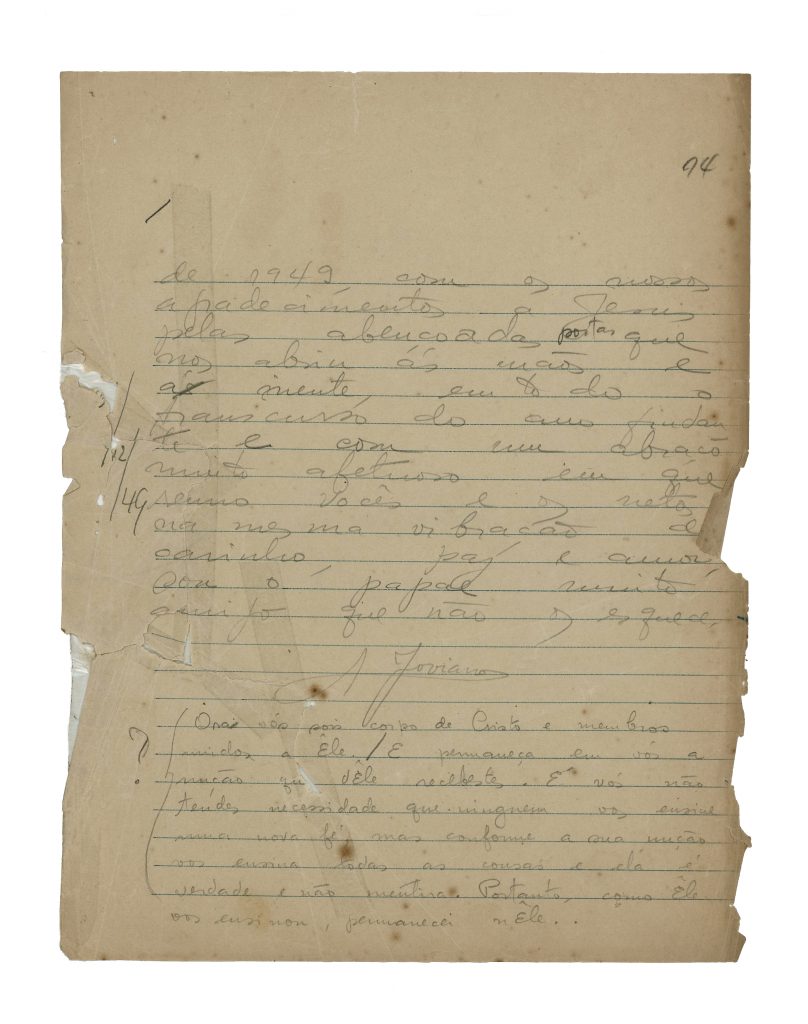 94
de 1949 com os nossos
agradecimentos a Jesus
pelas abençoadas portas que
nos abriu ás mãos e
á mente em todo o
transcurso do ano findan
te e com um abraço
muito afetuoso em que
reuno vocês e os netos
na mesma vibração de
carinho paz e amor,
sou o papae muito
amigo que não os esquece,
A Joviano
31/12/49
?
Ora vós sois corpo de Cristo e membros
unidos a Êle. / E permaneça em vós a
unção que dÊle recebestes. E vós não
tendes necessidade que ninguem vos ensine
uma nova fé, mas conforme a sua unção
vos ensina todas as cousas e ela é
verdade e não mentira. Portanto, como Êle
vos ensinou, permanecei nÊle...